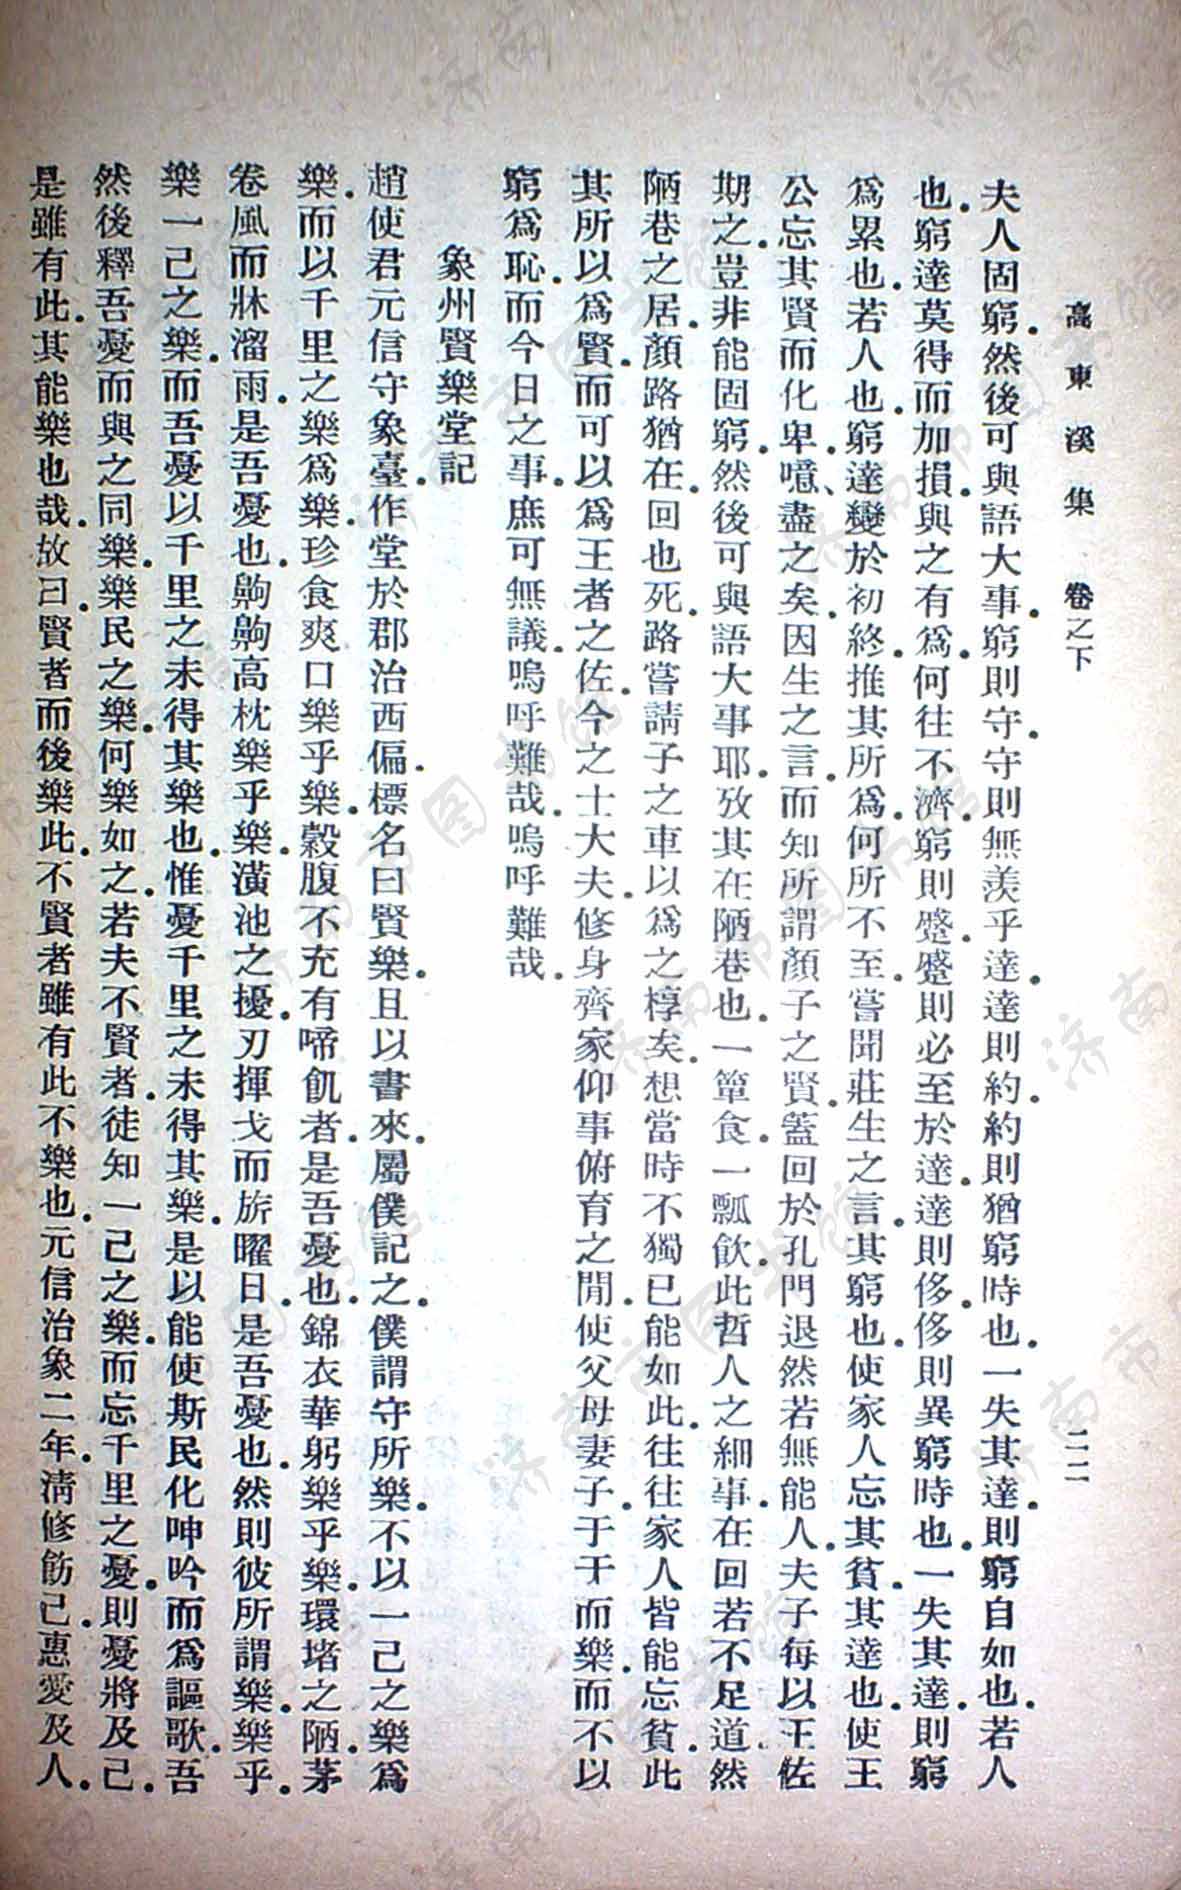 高東溪集　卷之下　二二
夫人固窮。然後可與語大事。窮則守。守則無羨乎達。達則約。約則猶窮時也。一失其達。則窮自如也。若人
也。窮達莫得而加損。與之有爲。何往不濟。窮則蹙。蹙則必至於達。達則侈。侈則異窮時也。一失其達。則窮
爲累也。若人也。窮達變於初終。推其所爲。何所不至。嘗聞莊生之言。其窮也。使家人忘其貧。其達也。使王
公忘其賢而化卑。噫、盡之矣。因生之言。而知所謂顏子之賢。蓋回於孔門退然若無能人。夫子每以王佐
期之。豈非能固窮。然後可與語大事耶。攷其在陋巷也。一簞食。一瓢飲。此哲人之細事。在回若不足道。然
陋巷之居。顏路猶在。回也死。路嘗請子之車以爲之椁矣。想當時不獨已能如此。往往家人皆能忘貧。此
其所以爲賢。而可以爲王者之佐。今之士大夫。修身齊家。仰事俯育之閒。使父母妻子。于于而樂。而不以
窮爲恥。而今日之事。庶可無議。嗚呼難哉。嗚呼難哉。
象州賢樂堂記
趙使君元信守象臺。作堂於郡治西偏。標名曰賢樂。且以書來。屬僕記之。僕謂守所樂。不以一己之樂爲
樂。而以千里之樂爲樂。珍食爽口。樂乎樂。穀腹不充。有啼飢者。是吾憂也。錦衣華躬。樂乎樂。環堵之陋。茅
卷風而牀溜雨。是吾憂也。齁齁高枕。樂乎樂。潢池之擾。刃揮戈而旂曜日。是吾憂也。然則彼所謂樂。樂乎。
樂一己之樂。而吾憂以千里之未得其樂也。惟憂千里之未得其樂。是以能使斯民化呻吟而爲謳歌。吾
然後釋吾憂而與之同樂。樂民之樂。何樂如之。若夫不賢者。徒知一己之樂。而忘千里之憂。則憂將及己。
是雖有此。其能樂也哉。故曰。賢者而後樂此。不賢者雖有此不樂也。元信治象二年。清修飭己。惠愛及人。